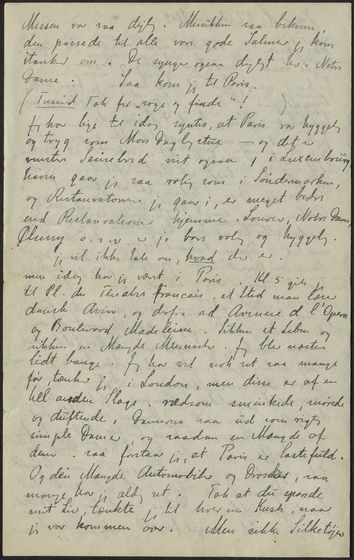 Messen var saa dejlig. Musikken saa bekvem,
den passede til alle vore gode Salmer jeg kom
itanker om. De synger ogsaa dejligt her i Notre
Dame. Saa kom jeg til Paris.
( Tak for "søge og finde"! )
Jeg har lige til idag syntes, at Paris var hyggelig
og tryg som Mors Dagligstue — og det er
venstre Seinebred vist ogsaa, i Luxembourg
haven gaar jeg saa rolig som i Søndermarken,
og Restaurationer jeg gaar i, er meget bedre
end Restaurationer hjemme. Louvre, Notre Dame
Cluny o.s.v. er jo bare rolig og hyggelig.
jeg vil ikke tale om, hvad der er.
men idag har jeg været i Paris Kl. 5 gik jeg
til Pl. du Théatre Francais, et Sted man
dansk Avis, og derfra ad Avenue de l'Opera
og Boulevard Madeleine. Sikken et Leben og
sikken en Mængde Mennesker. Jeg blev næsten
lidt bange. Jeg har vel nok set saa mange
før, tænker jeg, i London, men disse er af en
hel anden Slags. rædsom sminkede,
og duftende, Damerne saa ud som rigtig
simple Damer, og saadan en Mængde af
dem. saa forstaar jeg, at Paris er lastefuld.
Og den Mængde Automobiler og Droscher, saa
mange har jeg aldrig set. Tak at du sparede
mit Liv, tænkte jeg til hver en Kusk, naar
jeg var kommen over. Men ikke Silketøjer